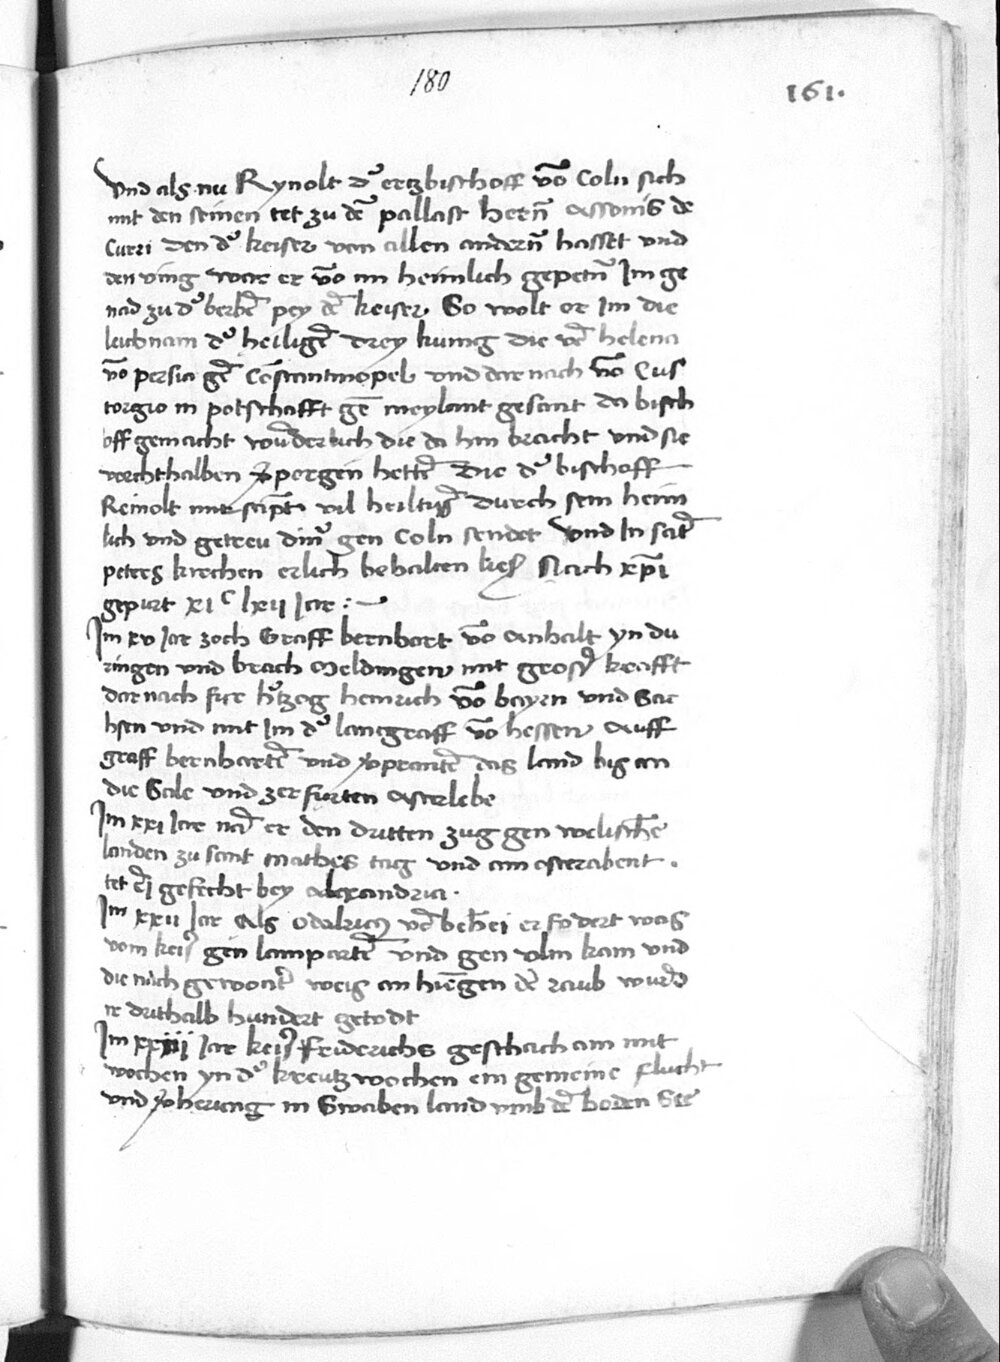 180
161.
Vnd als nu Rynolt d' ertzbischoff võ Coln sich
mit den seinen tet zu dē pallast hern̄ Assonis de
Curri den d' keiser von allen andern̄ hasset vnd
den ving wart er võ im heimlich gepetn̄ Im ge
nad zu d' pey dē keiser So wolt er Im die
leichnam d' heiligē drey kunig die vō helena
võ persia gē Constantinopel vnd dar nach võ Eus
torgio in potschafft gē meylant gesant da bisch
off gemacht wūderlich die da hin bracht vnd sie
vorcht halben pergen hettē Die d' bischoff
Reinolt mit vil durch sein heim
lich vnd getreu din' gen Coln sendet Vnd In sāt
peters kirchen erlich behalten hies Nach xp̄i
gepurt xi c lxii Jar :~
Im xv Jar zoch Graff bernhart võ Anhalt yn du
ringen vnd brach Meldingen mit grosß krafft
dar nach fur h'tzog heinrich võ bayrn vnd Sac
hsen vnd mit Im d' lantgraff võ hessen Auff
graff bernhartē vnd v'prantē das land bis an
die Sale vnd zerfurten Asterlebe
Im xxi Jar er den dritten zug gen welischē
landen zu sant mathes tag vnd am osterabent .
tet ein gefecht bey alexandria .
Im xxii Jar Als Odalricus vō behei erfodert was
vom keis' gen lampartē vnd gen vlm kam vnd
die nach gewont' weis an hiengen dē raub wurdē
ir drithalb hundert getodt
Im xxiii Jar keis' Friderichs geschach am mit
wochen yn d' kreutzwochen ein gemeine flucht
vnd v'herung in Swaben land vmb dē boden See